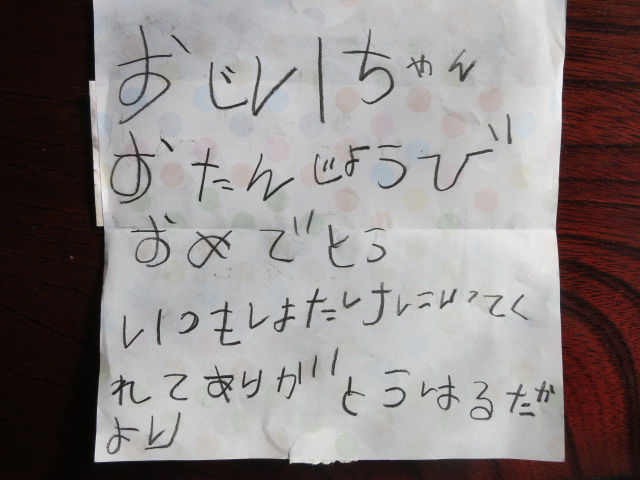 おじいちゃん
おたんじょうび
おめでとう
いつもしまたけにいってく
れてありがとうはるたか
より